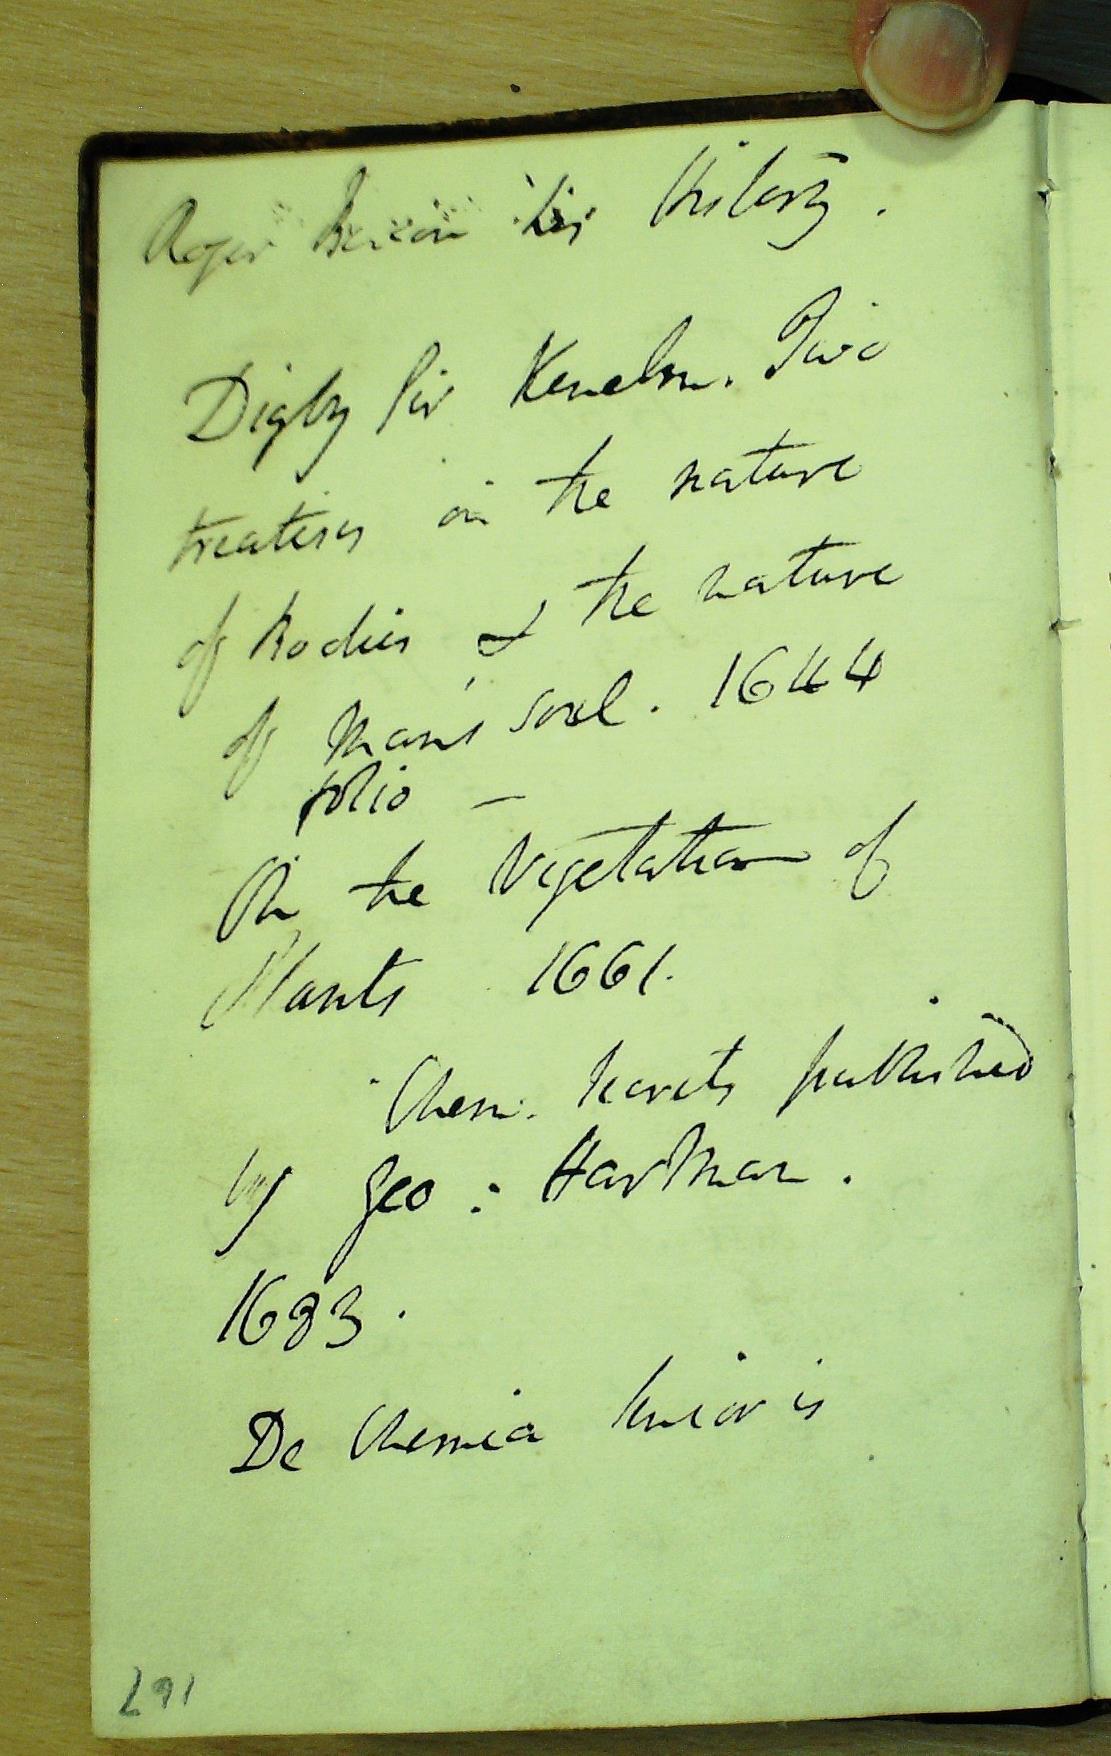 Roger Bacon his History.
Digby Sir Kenelm. Two
treatises on the nature
of bodies & the nature
of Man's soul. 1644
folio –
On the Vegetation of
Plants 1661.
Chem. Secrets published
by Geo: Hartman.
1683.
De Chemia Senioris
291